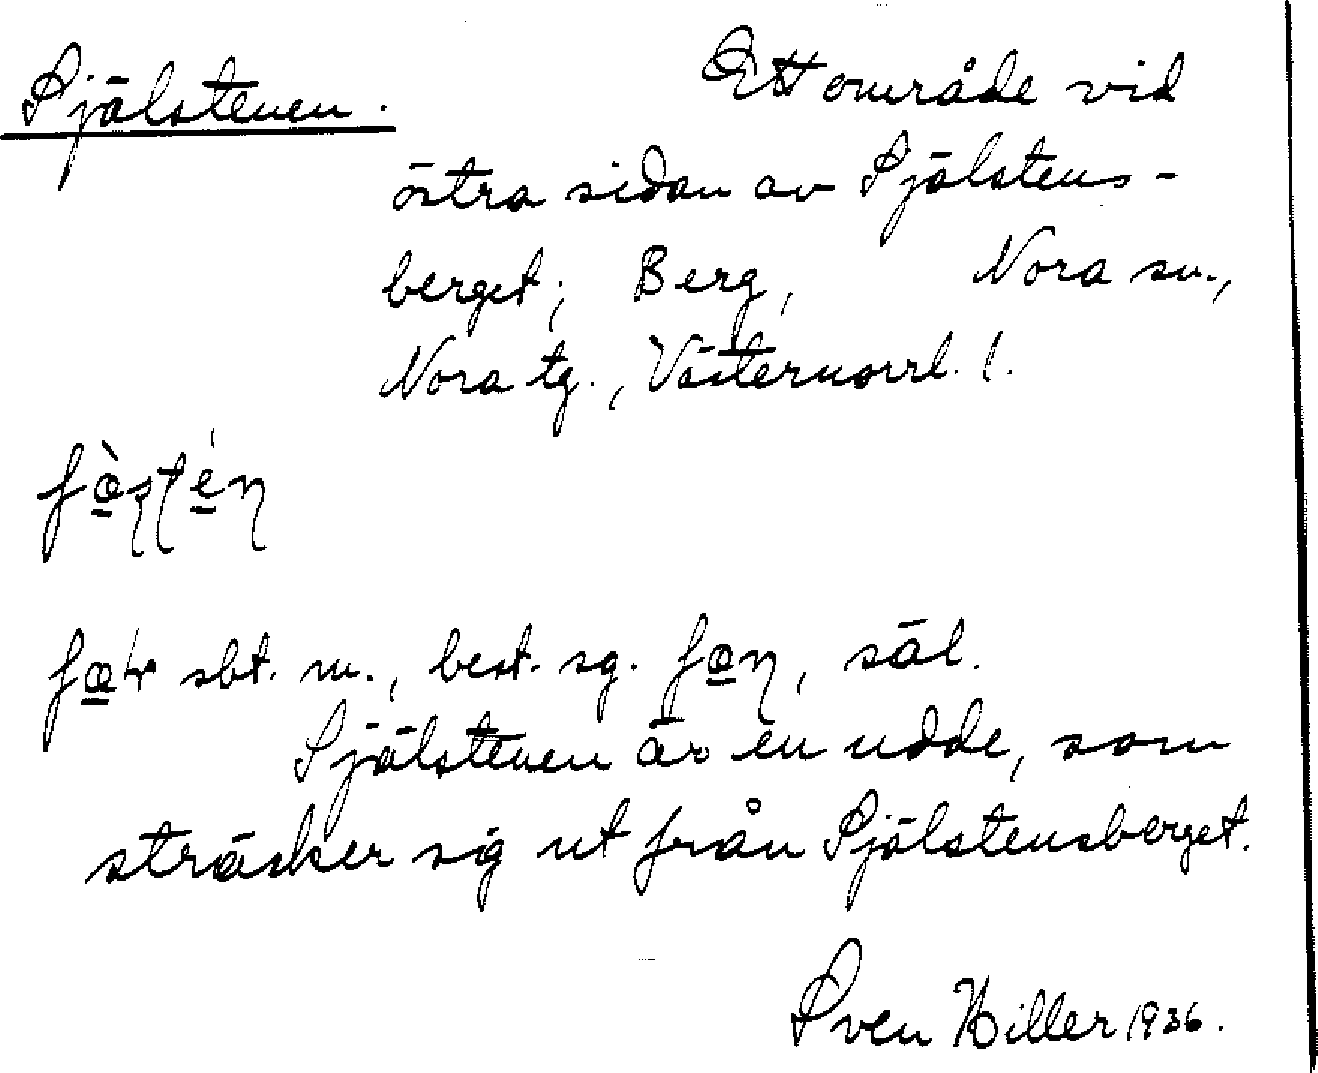 Själstenen. Ett område vid
östra sidan av Själstens-
berget; Berg, Nora sn.,
Nora tg., Västernorrl. l.
sbt. m., best. sg. säl.
Själstenen är en udde, som
sträcker sig ut från Själstensberget.
Sven Hiller 1936.